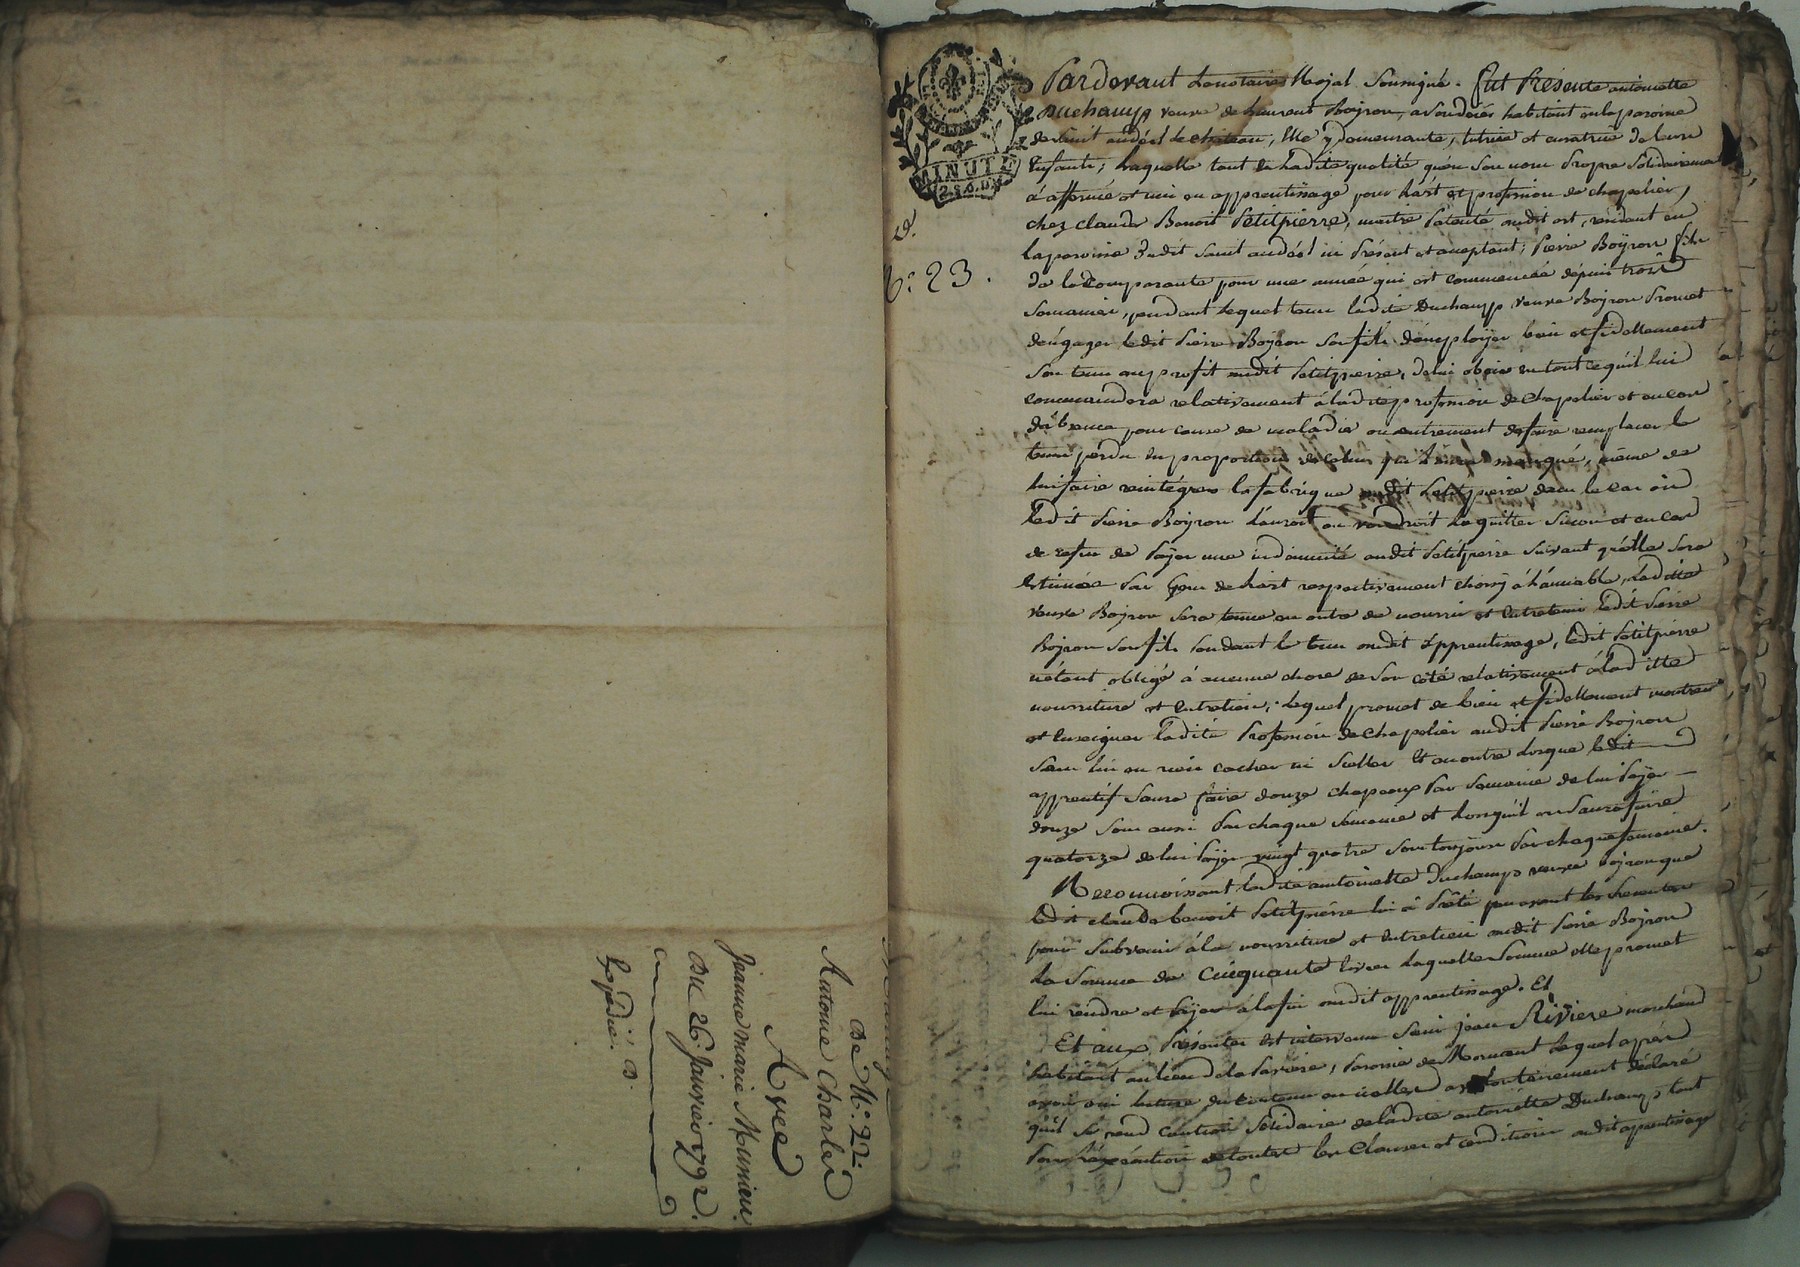 MINUTE
2. S. 6. D.
N.° 23.
Pardevant Le notaire Royal Soussigné. fut Présente antoinette
Duchamp veuve de Laurent Boyron, habitant en la paroisse
de Saint andéol le château, Elle y demeurante, tutrice et curatrice de leurs
Enfants; Laquelle tant en Ladite qualité qu'en Son nom Propre Solidairement
à affermé et mis en apprentissage pour L'art et profession de chapelier,
chez claude Benoit Petitpierre, maitre Patenté audit art, résidant en
la paroisse dudit Saint andéol ici Présent et acceptant; Pierre Boÿron fils
de la Comparante pour une année qui est commencée depuis trois
Semaines, pendant Lequel tems Ladite Duchamp veuve Boyron Promet
d'engager Ledit Pierre Boyron Son fils d'employer bien et fidellement
Son tems au profit audit Petitpierre, de lui obeir en tout ce qu'il lui
commandera relativement à ladite profession de Chapelier et en cas
d'absence pour cause de maladie ou autrement de faire remplacer le
tems perdu en proportion de celui qu'il aura manqué, même de
lui faire reintégrer la fabrique audit Petitpierre dans le cas où
Ledit Pierre Boyron L'auroit ou voudroit La quitter Sinon et en cas
de refus de Payer une indamnité audit Petitpierre Suivant qu'elle Sera
Estimée Par Gens de L'art respectivement choisy à L'amiable, Ladite
veuve Boyron Sera tenue en outre de nourrir et Entretenir Ledit Pierre
Boyron Son fils Pendant le tems audit apprentissage, Ledit Petitpierre
n'étant obligé à aucune chose de Son coté relativement à Laditte
nourriture et Entretien; Lequel promet de bien et fidellement montrer
et Enseigner Ladite Profession de Chapelier audit Pierre Boyron
Sans lui en rien cacher ni Seller Et en outre Lorsque Ledit
apprentif Saura faire douze chapeaux Par Semaine de lui Payer
douze Sous aussi Par chaque Semaine et Lorsqu'il en Saura faire
quatorze de lui Payer vingt quatre Sous toujours Par chaque Semaine.
Reconnoissant Ladite antoinette Duchamp veuve Boyron que
Ledit claude benoit Petitpierre lui à Prêté peu avant les Presentes
pour Subvenir à la nourriture et Entretien audit Pierre Boyron
La Somme de Cinquante livres Laquelle Somme elle promet
lui rendre et Payer à la fin audit apprentissage. Et
Et aux Présentes Est intervenu Sieur jean Rivière marchand
habitant au lieu de la Parière, Paroisse de Mornant Lequel après
avoir oui lecture du Contenu en icelles a volontairement Déclaré
qu'il Se rend caution Solidaire de ladite antoinette Duchamp tant
Pour l'exécution de toutes les Clauses et conditions audit apprentissage
De N.° 22.
Antoine Charles
Avec
Jeanne marie Mussieu.
Du 26. Janvier 1792.
Expédié.